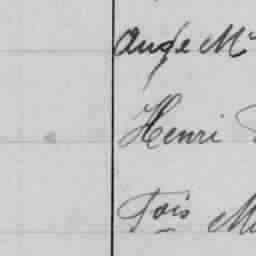 Ange M
Henri
Fois M